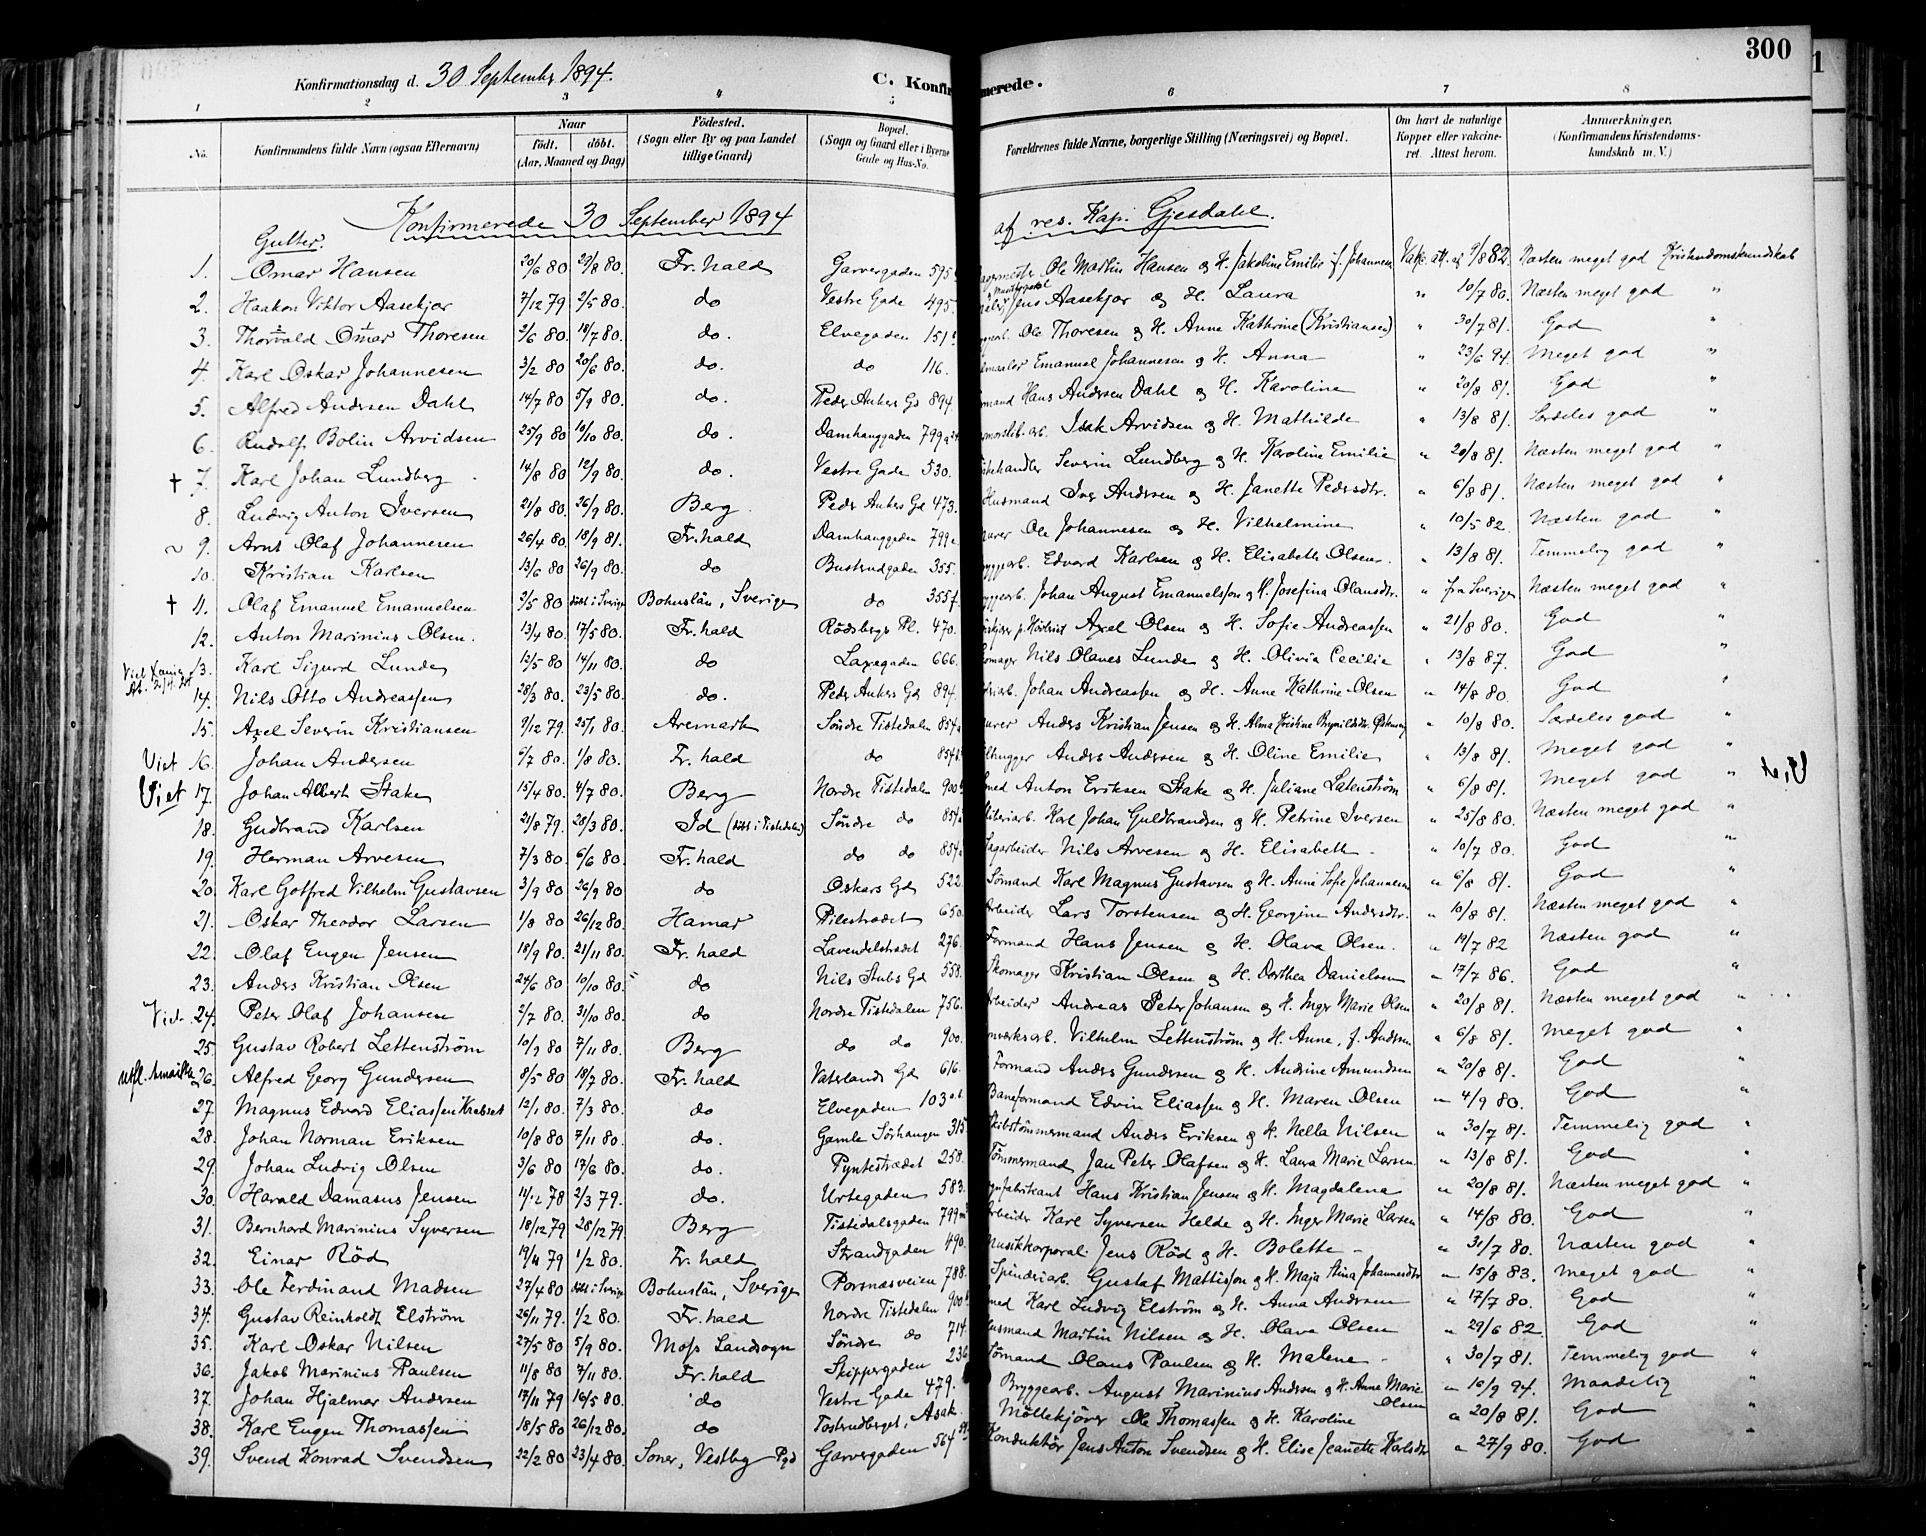 300
Konfirmationsdag d. 30 September 1894.
C. Konfirmerede.
1 2 3 4 5 6 7 8
No. Konfirmandens fulde Navn (ogsaa Efternavn) Naar födt. döbt. (Aar, Maaned og Dag) Födested. (Sogn eller By og paa Landet tillige Gaard) Bopæl. (Sogn og Gaard eller i Byerne Gade og Hus-No. Forældrenes fulde Navne, borgerlige Stilling (Næringsvei) og Bopæl. Om havt de naturlige Kopper eller vakcineret. Attest herom. Anmærkninger, (Konfirmandens Kristendomskundskab m. V.)
Konfirmerede 30 September 1894 af res. Kap. Gjesdahl.
Gutter.
1. Omar Hansen 20/6 80 29/8 80. Fr.hald Garvergaden 595 Ole Martin Hansen og H. Jakobine Emilie f. Johannesen Vakc. att. af 9/8 82. Næsten meget god Kristendomskundskab
2. Haakon Viktor Aasekjær 7/12 79 2/5 80. do Vestre Gade 495. Jens Aasekjær og H. Laura " 10/7 80. Næsten meget god "
3. Thorvald Omar Thoresen 2/6 80 18/7 80. do. Elvegaden 151 Ole Thoresen og H. Anne Kathrine (Kristiansen) " 30/7 81. God "
4. Karl Oskar Johannesen 3/2 80 20/6 80. do. do 116. Emanuel Johannesen og H. Anna " 23/6 94. Meget god "
5. Alfred Andersen Dahl 14/7 80 5/9 80. do. Peder Ankers Gd 894. Hans Andersen Dahl og H. Karoline " 20/8 81. God "
6. Rudolf Bolin Arvidsen 25/9 80 10/10 80. do. Damhauggaden 799 Isak Arvidsen og H. Mathilde " 13/8 81. Særdeles god "
† 7. Karl Johan Lundberg 14/8 80 12/9 80. do. Vestre Gade 530. Severin Lundberg og H. Karoline Emilie " 20/8 81. Næsten meget god "
8. Ludvig Anton Iversen 21/8 80 26/9 80. Berg Peder Ankers Gd 473. Husmand Iver Andersen og H. Janette Pedersdtr. " 6/8 81. Næsten meget god "
~ 9. Arnt Olaf Johannesen 26/4 80. 18/9 81. Fr.hald Damhauggaden 799 Ole Johannesen og H. Vilhelmine " 10/5 82. Næsten god "
10. Kristian Karlsen 13/6 80 26/9 80. do Busterudgaden 355. Edvard Karlsen og H. Elisabeth Olsen. " 13/8 81. Temmelig god "
† 11. Olaf Emanuel Emanuelsen 2/5 80 döbt i Sverige Bohuslän, Sverige do 355f. Johan August Emanuelsson og H. Josefina Olausdtr. " fra Sverige Næsten meget god "
12. Anton Marinius Olsen. 13/4 80. 17/5 80. Fr.hald Rödsbergs Pl. 470. Axel Olsen og H. Sofie Andreassen " 21/8 80. God "
13. Karl Sigurd Lunde 12/5 80 14/11 80. do Laxegaden 666. Nils Olaves Lunde og H. Olivia Cecilie " 13/8 87. God "
14. Nils Otto Andreassen 28/3 80. 23/5 80. do. Peder Ankers Gd 894. Johan Andreassen og H. Anne Kathrine Olsen " 14/8 80. God "
15. Axel Severin Kristiansen 9/12 79. 25/1 80. Aremark Söndre Tistedalen 854 Anders Kristian Jensen og H. Alma Kristine " 10/8 80. Særdeles god "
Viet 16. Johan Andersen 6/7 80. 1/8 80. Fr.hald do 854 Anders Andersen og H. Oline Emilie " 13/8 81. Meget god "
Viet 17. Johan Albert Stake 15/4 80. 4/7 80. Berg Nordre Tistedalen 900 Anton Eriksen Stake og H. Juliane Latenström " 6/8 81. Meget god " Viet
18. Gudbrand Karlsen 21/8 79. 28/3 80. Id (döbt i Tistedalen) Söndre do 854 Karl Johan Guldbrandsen og H. Petrine Iversen " 25/8 80. Næsten meget god "
19. Herman Arvesen 7/3 80. 6/6 80. Fr.hald do do 854 Sagarbeider Nils Arvesen og H. Elisabeth " 10/7 80. God "
20. Karl Gotfred Vilhelm Gustavsen 3/9 80 26/9 80 do Oskars Gd 522. Sömand Karl Magnus Gustavsen og H. Anne Sofie Johannesen " 6/8 81. God "
21. Oskar Theodor Larsen 1/8 80 26/12 80. Hamar Pilestrædet 650. Arbeider Lars Torstensen og H. Georgine Andersdtr. " 10/8 81. Næsten meget god "
22. Olaf Eugen Jensen 18/9 80. 21/11 80. Fr.hald Lavendelstrædet 276. Formand Hans Jensen og H. Olava Olsen. " 19/7 82 Næsten god "
23. Anders Kristian Olsen 24/6 80 10/10 80. do Nils Stubs Gd 558. Skomager Kristian Olsen og H. Dorthea Danielsen " 17/7 86. God "
Viet 24. Peter Olaf Johansen 2/7 80. 31/10 80. do Nordre Tistedalen 756. Arbeider Andreas Peter Johansen og H. Inger Marie Olsen " 20/8 81. Næsten meget god "
25. Gustav Robert Lettenström 10/9 80 7/11 80. Berg do do 900. Vilhelm Lettenström og H. Anne, f. Andersen " 6/8 81. Meget god "
utfl. Amerika 26. Alfred Georg Gundersen 8/5 80 18/7 80. Fr.hald Vaterlands Gd 616. Formand Anders Gundersen og H. Andrine Amundsen " 20/8 81. God "
27. Magnus Edvard Eliassen Krabset 12/1 80. 7/3 80. do Elvegaden 103 Baneformand Edvin Eliassen og H. Maren Olsen " 4/9 80. God "
28. Johan Norman Eriksen 10/8 80 7/11 80. do. Gamle Sörhaugen 315 Skibstömmermand Anders Eriksen og H. Nella Nilsen " 30/7 81. Temmelig god "
29. Johan Ludvig Olsen 3/6 80 17/6 80. do. Pyntestrædet 258. Tömmermand Jan Peter Olafsen og H. Laura Marie Larsen. " 13/8 81. God "
30. Harald Damasus Jensen 11/12 78 2/3 79. do. Urtegaden 583. Hans Kristian Jensen og H. Magdalena " 20/8 81. Næsten meget god "
31. Bernhard Marinius Syversen 18/12 79 28/12 79. Berg Tistedalsgaden 799 Arbeider Karl Syversen Helde og H. Inger Marie Larsen " 14/8 80. God "
32. Einar Röd 19/11 79 1/2 80. Fr.hald Strandgaden 490. Musikkorporal Jens Röd og H. Bolette " 31/7 80. Næsten god "
33. Ole Ferdinand Madsen 27/4 80 döbt i Sverige Bohuslän, Sverige Porsnæsveien 788. Spinderiarb. Gustaf Mattisson og H. Maja Stina Johannesdtr " 15/8 83. Meget god "
34. Gustav Reinholdt Elström 26/11 79. 1/2 80. Fr.hald Nordre Tistedalen 900 Karl Ludvig Elström og H. Anna Andersen " 17/7 80. God "
35. Karl Oskar Nilsen 27/5 80 5/9 80. Moss Landsogn Söndre do 714. Husmand Martin Nilsen og H. Olava Olsen " 29/6 82. God "
36. Jakob Marinius Paulsen 11/8 80 7/11 80. Fr.hald Skippergaden 236 Sömand Olaus Paulsen og H. Malene " 30/7 81. Temmelig god "
37. Johan Hjalmar Andersen 17/11 79 16/5 80. do Vestre Gade 479. Bryggearb. August Marinius Andersen og H. Anne Marie Olsen " 16/9 94. Maadelig "
38. Karl Eugen Thomassen 18/5 80 26/12 80. do Tostrudberget, Asak Möllekjörer Ole Thomassen og H. Karoline " 20/8 81. God "
39. Svend Konrad Svendsen 22/2 80 23/4 80. Soner, Vestby Pgd Garvergaden 564 Konduktör Jens Anton Svendsen og H. Elise Jeanette Karlsdtr " 27/9 80. God "